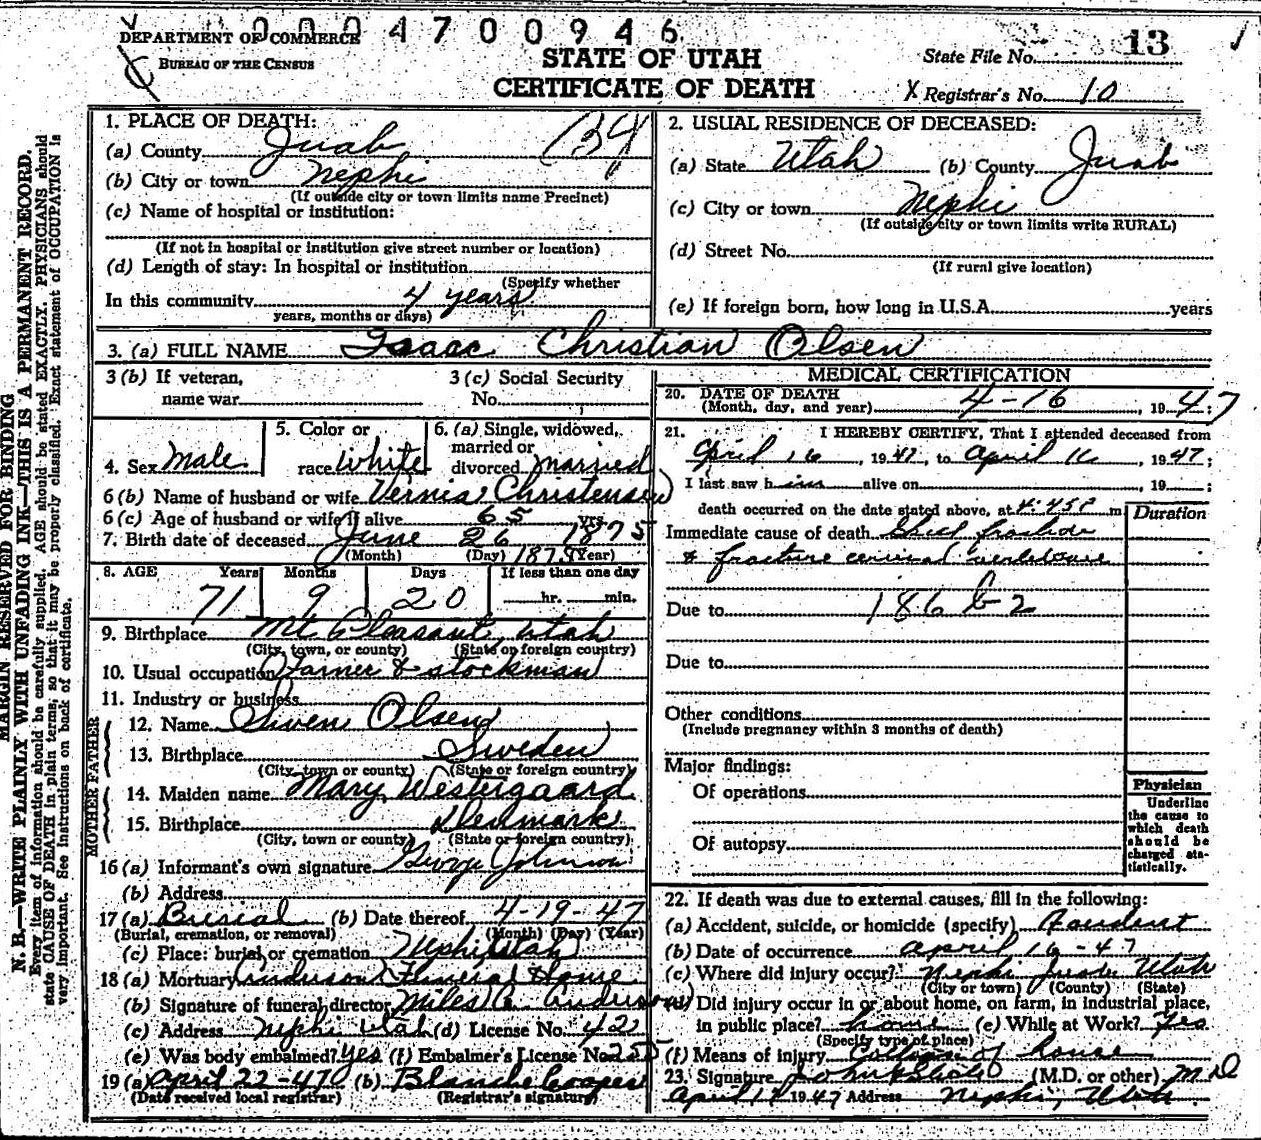 00004700946
DEPARTMENT OF COMMERCE
BUREAU OF THE CENSUS
STATE OF UTAH
CERTIFICATE OF DEATH
State File No. 13
X Registrar's No. 10
MARGIN RESERVED FOR BINDING
N. B.—WRITE PLAINLY WITH UNFADING INK—THIS IS A PERMANENT RECORD.
Every item of information should be carefully supplied. AGE should be stated EXACTLY. PHYSICIANS should
state CAUSE OF DEATH in plain terms, so that it may be properly classified. Exact statement of OCCUPATION is
very important. See instructions on back of certificate.
1. PLACE OF DEATH:
(a) County Juab
(b) City or town Nephi
(If outside city or town limits name Precinct)
(c) Name of hospital or institution:
(If not in hospital or institution give street number or location)
(d) Length of stay: In hospital or institution
(Specify whether
In this community 4 years
years, months or days)
2. USUAL RESIDENCE OF DECEASED:
(a) State Utah (b) County Juab
(c) City or town Nephi
(If outside city or town limits write RURAL)
(d) Street No.
(If rural give location)
(e) If foreign born, how long in U.S.A. years
3. (a) FULL NAME Isaac Christian Olsen
3 (b) If veteran, name war
3 (c) Social Security No.
4. Sex Male
5. Color or race White
6. (a) Single, widowed, married or divorced married
6 (b) Name of husband or wife Vernia Christensen
6 (c) Age of husband or wife if alive 65 yrs.
7. Birth date of deceased June 26 1875
(Month) (Day) 1875 (Year)
8. AGE Years Months Days If less than one day
71 9 20 hr. min.
9. Birthplace Mt Pleasant, Utah
(City, town, or county) (State or foreign country)
10. Usual occupation Farmer & stockman
11. Industry or business
FATHER
12. Name Swen Olsen
13. Birthplace Sweden
(City, town or county) (State or foreign country)
MOTHER
14. Maiden name Mary Westergaard
15. Birthplace Denmark
(City, town or county) (State or foreign country)
16 (a) Informant's own signature George Johnson
(b) Address
17 (a) Burial (b) Date thereof 4-19-47
(Burial, cremation, or removal) (Month) (Day) (Year)
(c) Place: burial or cremation Nephi Utah
18 (a) Mortuary Anderson Funeral Home
(b) Signature of funeral director Miles A. Anderson
(c) Address Nephi Utah (d) License No. 42
(e) Was body embalmed? Yes (f) Embalmer's License No. 255
19 (a) April 22-47 (b) Blanche Cooper
(Date received local registrar) (Registrar's signature)
MEDICAL CERTIFICATION
20. DATE OF DEATH
(Month, day, and year) 4-16, 1947;
21. I HEREBY CERTIFY, That I attended deceased from
April 16, 1947, to April 16, 1947;
I last saw him alive on , 19 ;
death occurred on the date stated above, at 4:45 P m.
Duration
Immediate cause of death
& fracture cervical vertebrae
Due to 186 b 2
Due to
Other conditions
(Include pregnancy within 3 months of death)
Major findings:
Of operations
Of autopsy
Physician
Underline the cause to which death should be charged statistically.
22. If death was due to external causes, fill in the following:
(a) Accident, suicide, or homicide (specify) Accident
(b) Date of occurrence April 16-47
(c) Where did injury occur? Nephi Juab Utah
(City or town) (County) (State)
(d) Did injury occur in or about home, on farm, in industrial place,
in public place? home (e) While at Work? Yes
(Specify type of place)
(f) Means of injury Collapse of house
23. Signature (M.D. or other) MD
April 17 1947 Address Nephi, Utah.